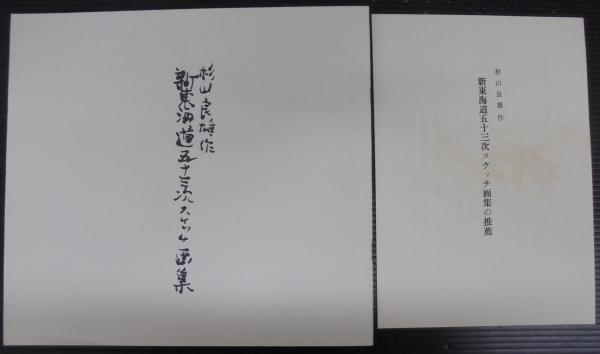 杉山良雄作
新東海道五十三次スケッチ画集
杉山良雄作
新東海道五十三次スケッチ画集の推薦